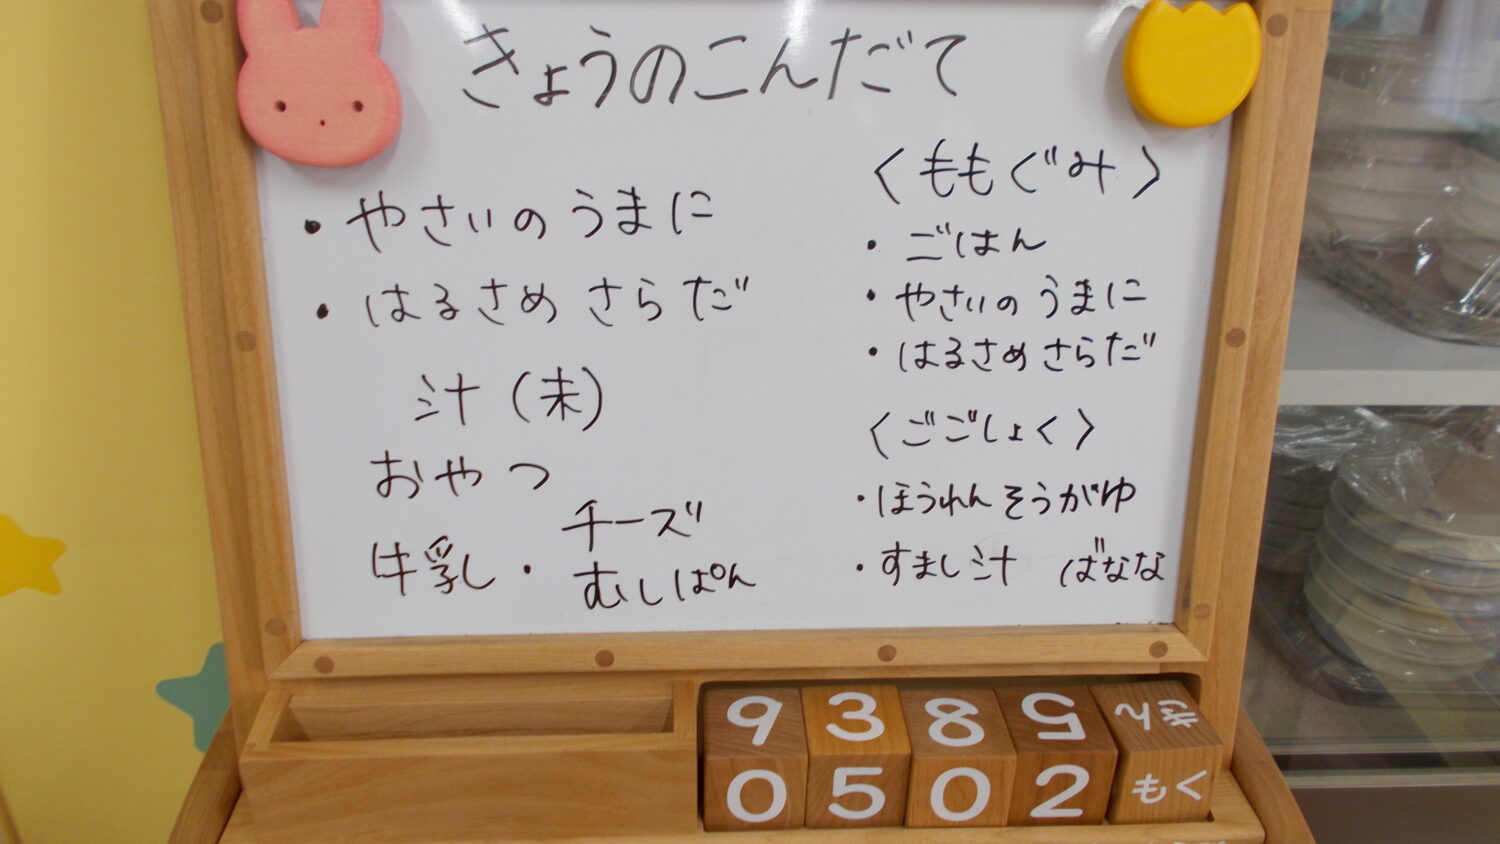 きょうのこんだて
・やさいのうまに
・はるさめさらだ
汁(未)
おやつ
牛乳・チーズむしぱん
〈ももぐみ〉
・ごはん
・やさいのうまに
・はるさめさらだ
〈ごごしょく〉
・ほうれんそうがゆ
・すまし汁 ばなな
9 3 8 5 きん
0 5 0 2 もく